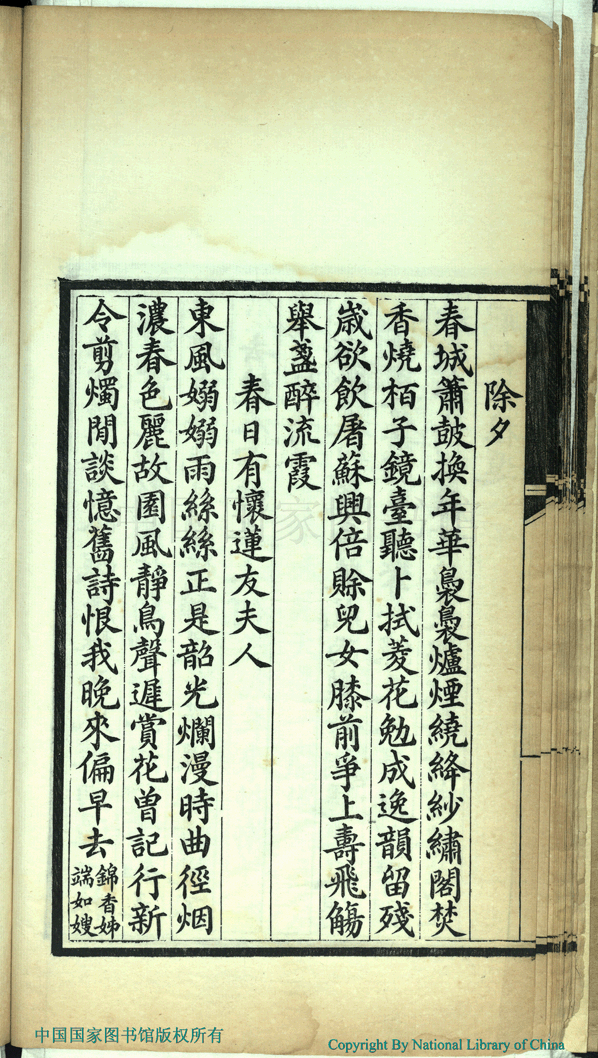 除夕
春城簫鼓換年華裊裊爐煙繞絳紗繡閣焚
香燒栢子鏡臺聽卜拭菱花勉成逸韻留殘
歲欲飲屠蘇興倍賒兒女膝前爭上壽飛觴
舉盞醉流霞
春日有懷蓮友夫人
東風嫋嫋雨絲絲正是韶光爛漫時曲徑烟
濃春色麗故園風靜鳥聲遲賞花曾記行新
令剪燭閒談憶舊詩恨我晚來偏早去錦香姊
端如嫂
中国国家图书馆版权所有
Copyright By National Library of China